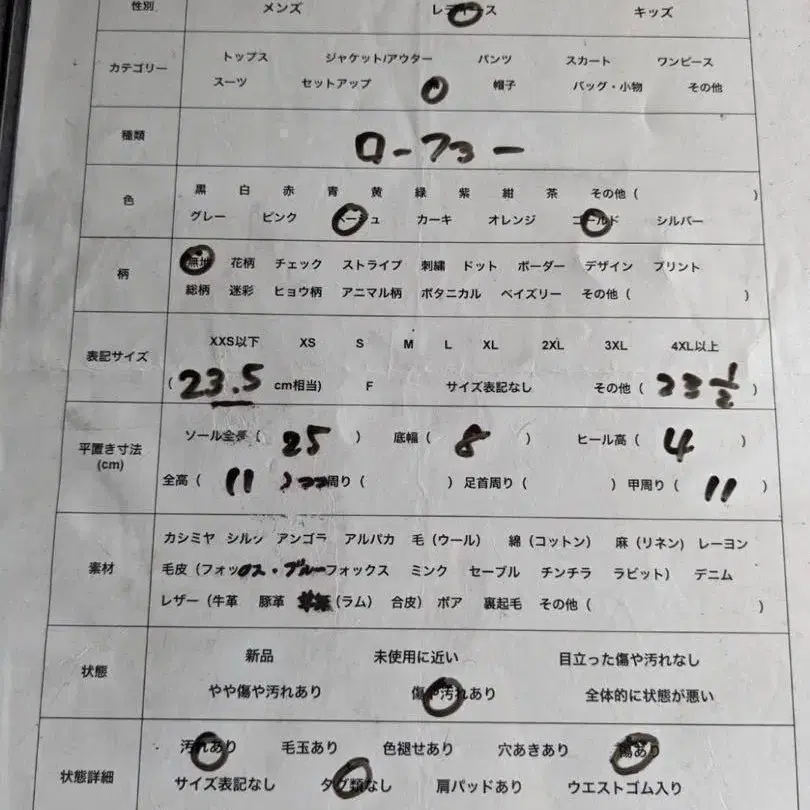 性別 メンズ レディース キッズ
カテゴリー トップス ジャケット/アウター パンツ スカート ワンピース
スーツ セットアップ 帽子 バッグ・小物 その他
種類 ローファー
色 黒 白 赤 青 黄 緑 紫 紺 茶 その他 ( )
グレー ピンク ベージュ カーキ オレンジ ゴールド シルバー
柄 無地 花柄 チェック ストライプ 刺繍 ドット ボーダー デザイン プリント
総柄 迷彩 ヒョウ柄 アニマル柄 ボタニカル ペイズリー その他 ( )
表記サイズ XXS以下 XS S M L XL 2XL 3XL 4XL以上
( 23.5 cm相当) F サイズ表記なし その他 ( 23 1/2 )
平置き寸法 (cm) ソール全長 ( 25 ) 底幅 ( 8 ) ヒール高 ( 4 )
全高 ( 11 周り ( ) 足首周り ( ) 甲周り ( 11 )
素材 カシミヤ シルク アンゴラ アルパカ 毛 (ウール) 綿 (コットン) 麻 (リネン) レーヨン
毛皮 (フォックス・ブルーフォックス ミンク セーブル チンチラ ラビット) デニム
レザー (牛革 豚革 (ラム) 合皮) ボア 裏起毛 その他 ( )
状態 新品 未使用に近い 目立った傷や汚れなし
やや傷や汚れあり 傷や汚れあり 全体的に状態が悪い
状態詳細 汚れあり 毛玉あり 色褪せあり 穴あきあり 傷あり
サイズ表記なし タグ類なし 肩パッドあり ウエストゴム入り